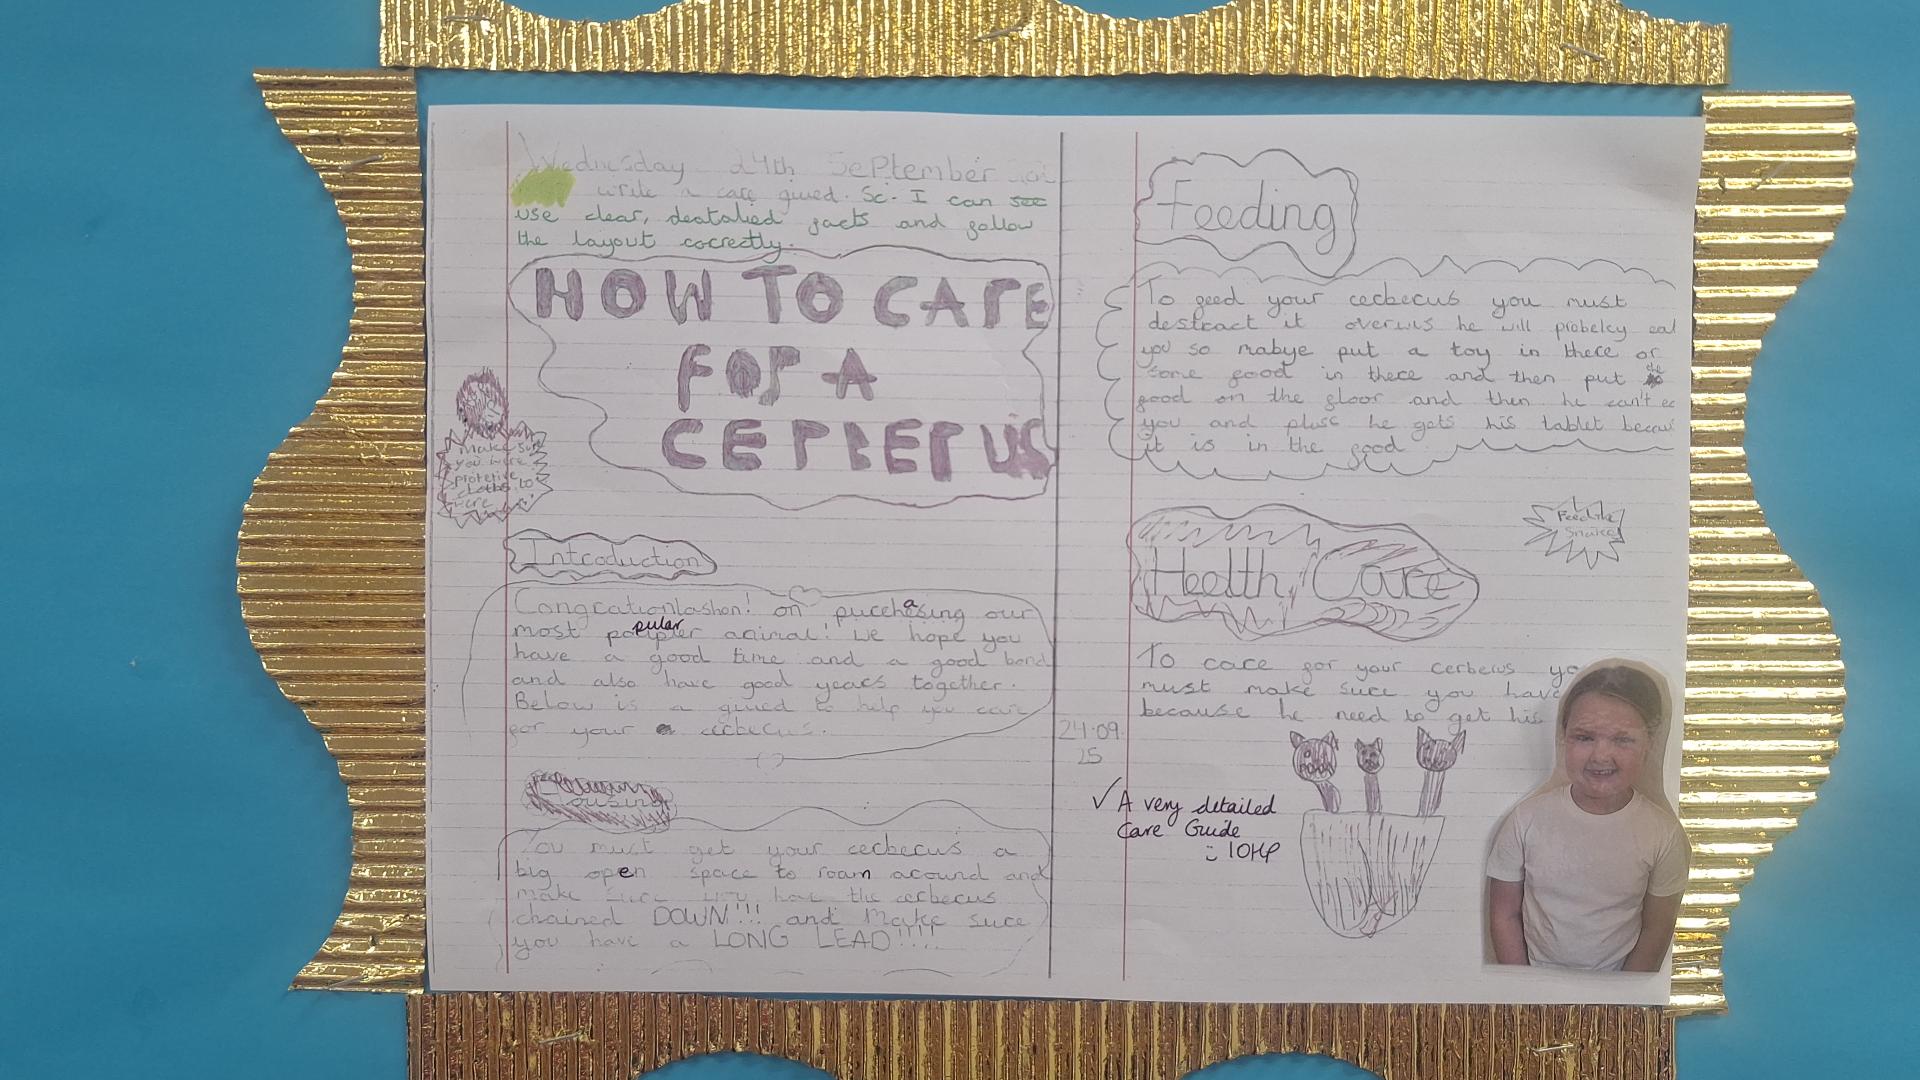 Wednesday 24th September
write a care giued. Sc. I can see
use clear, deatalied facts and follow
the layout correctly.
HOW TO CARE
FOR A
CERBERUS
Make sure
you were
protetive
cloths to
were
Introduction
Congrationlashon! on purchasing our
most popular animal! We hope you
have a good time and a good bond
and also have good years together.
Below is a giued to help you care
for your cerberus.
Housing
You must get your cerberus a
big open space to roam around and
make sure you have the cerberus
chained DOWN!!! and make sure
you have a LONG LEAD!!!!
24.09.
25
Feeding
To feed your cerberus you must
destract it overwis he will probelcy eat
you so mabye put a toy in there or
some food in there and then put the
food on the floor and then he can't ea
you and pluss he gets his tablet becau
it is in the food
Health Care
Feed the
Snake
To care for your cerberus yo
must make sure you have
because he need to get his
✓ A very detailed
Care Guide
10HP